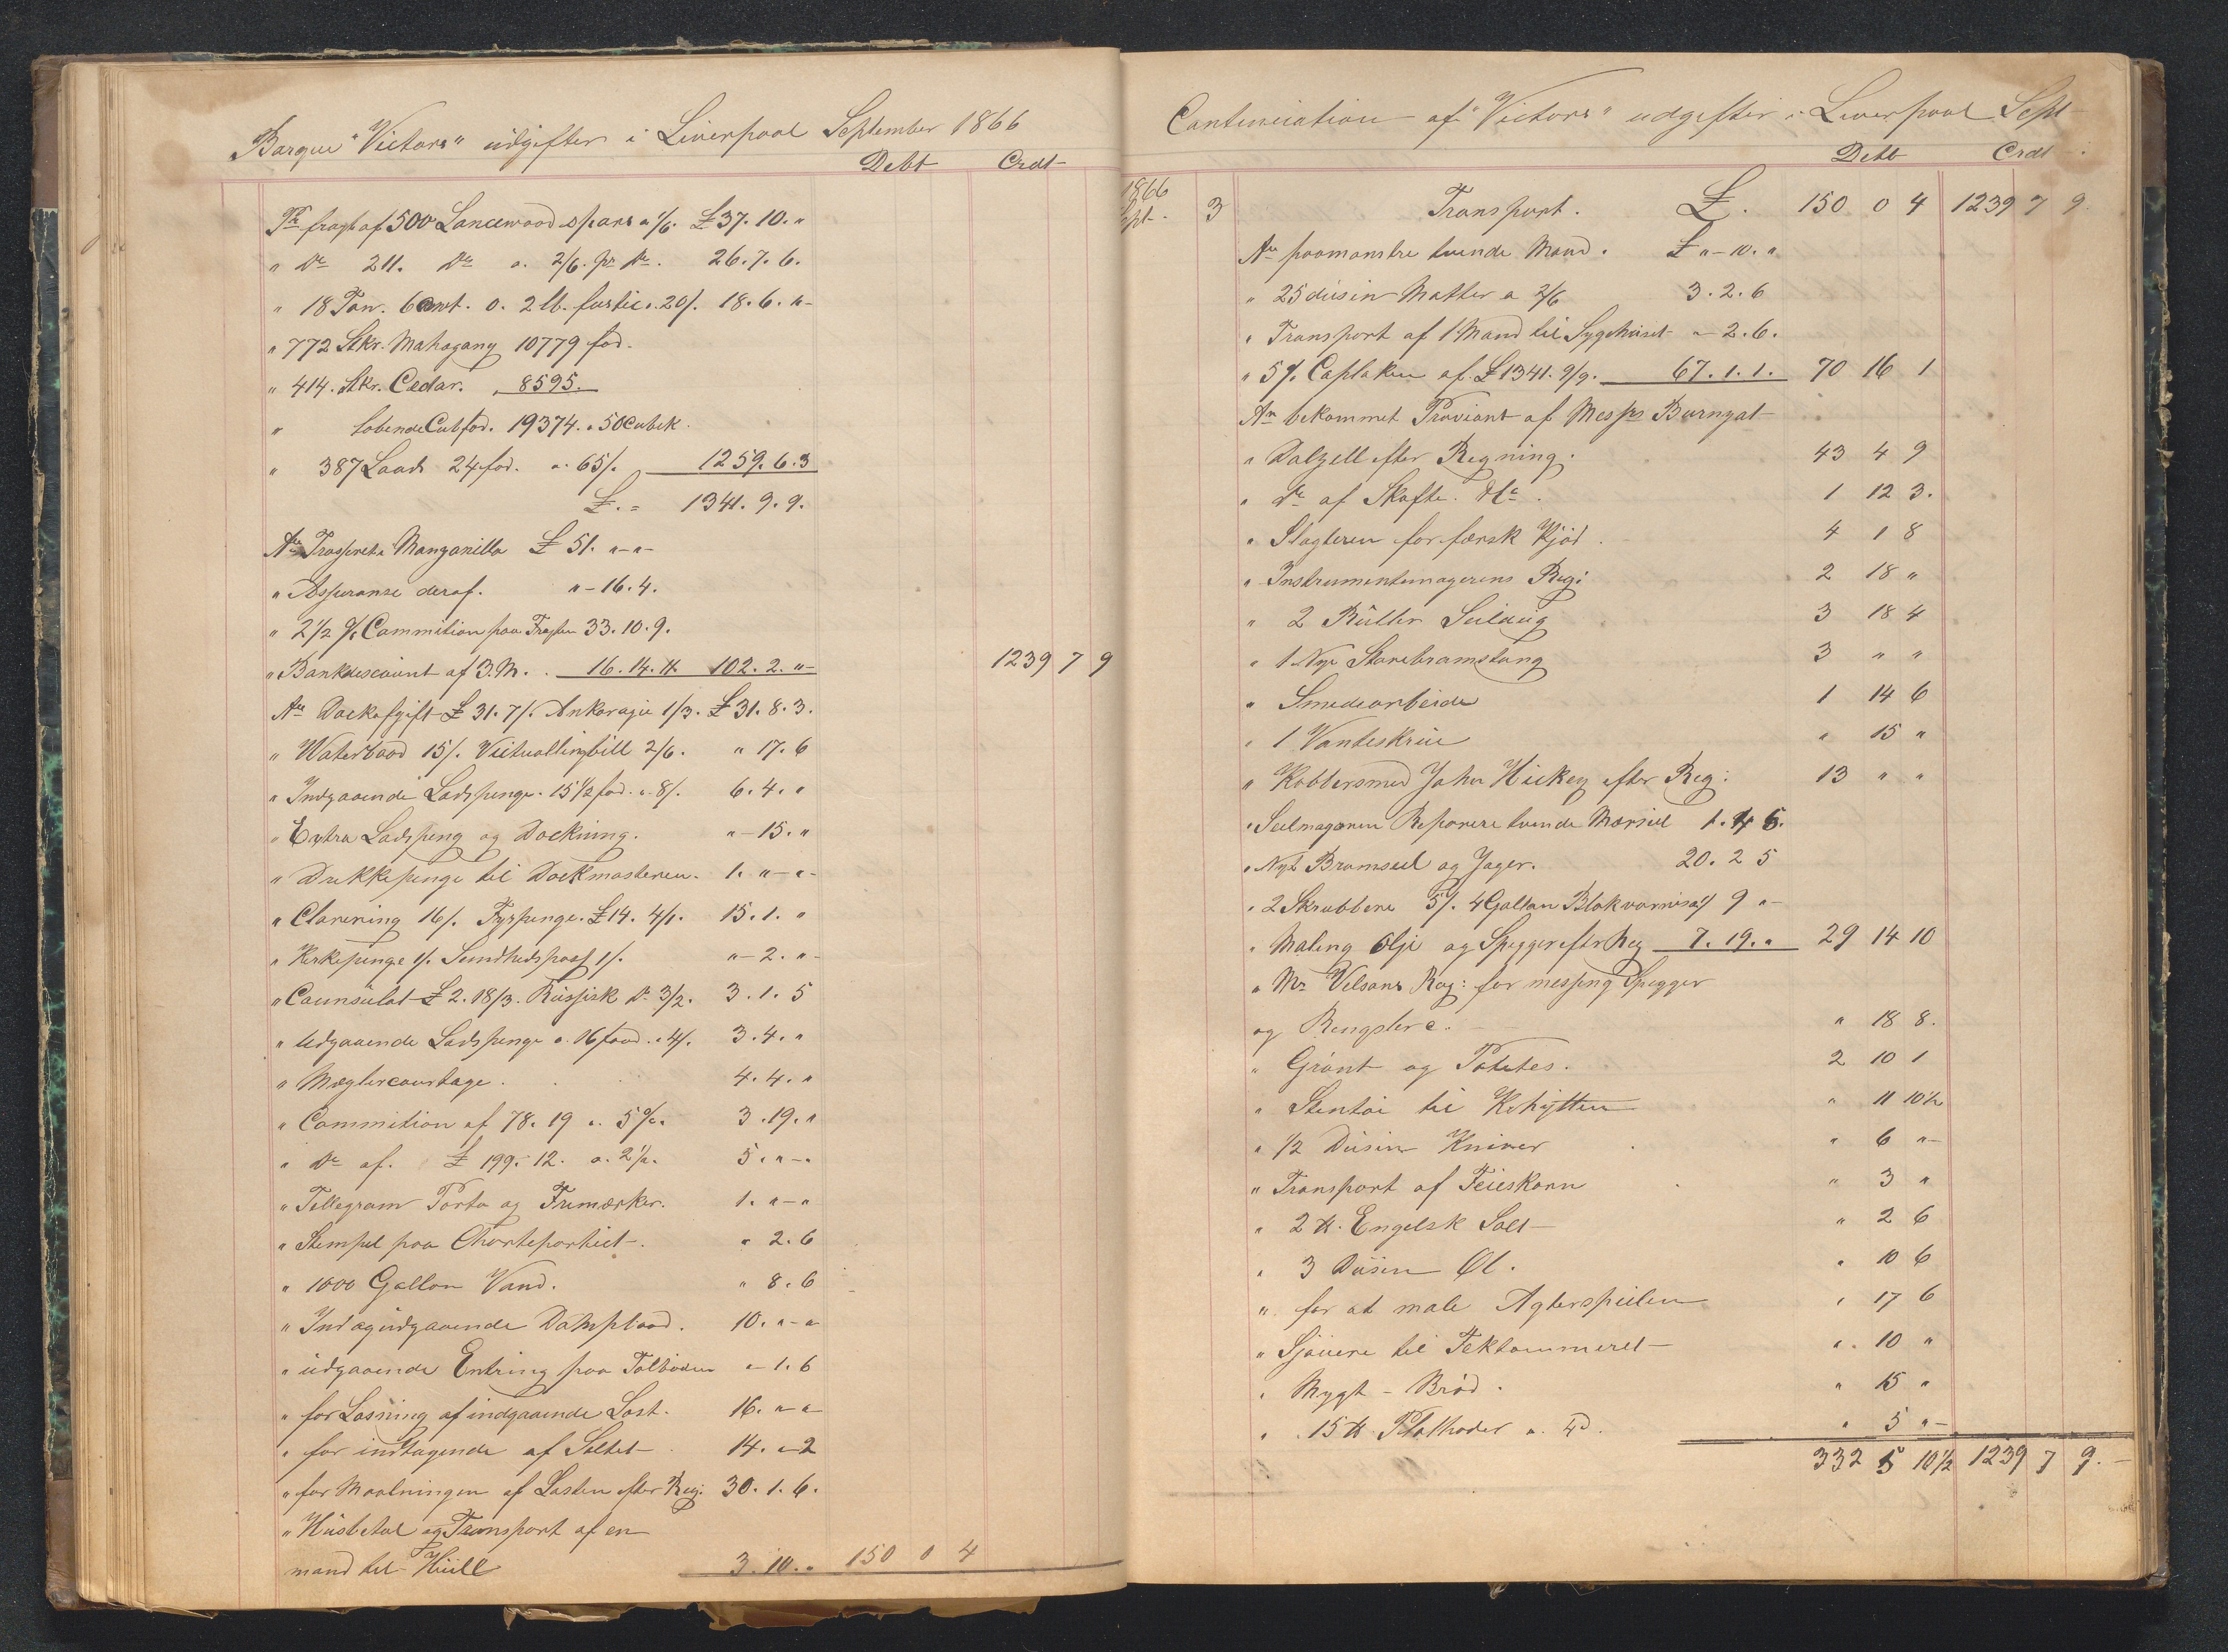 Barque "Victors" udgifter i Liverpool September 1866
Debt Crdt
Pr fragt af 500 Lancewood spars a 1/6. £ 37. 10. "
" Do 211. Do a. 2/6. pr Do. 26. 7. 6.
" 18 Ton. 6 cwt. 0. 2 lb. fustic a. 20/. 18. 6. "-
" 772 Stkr. Mahogany 10779 fod.
" 414. Stkr. Cedar. " 8595.
" lobende Cubfod. 19374. a 50 Cubik.
" 387 Loads 24 fod. a. 65/. 1259. 6. 3
£. = 1341. 9. 9.
An Manzanilla £ 51. "-"-
" Assuranse deraf. "- 16. 4.
" 2 1/2 % Commition paa Fragten 33. 10. 9.
" Bankdiscount af 3. M. . 16. 14. 11. 102. 2. "- 1239 7 9
An Dockafgift £ 31. 7/. Ankoragie 1/3. £ 31. 8. 3.
" Waterbaad 15/. Victuallingbill 2/6. " 17. 6
" Indgaaende Lodspenge. 15 1/2 fod. a. 8/. 6. 4. "
" Extra Lodspeng og Docking. "- 15. "
" Drikkepenge til Dockmasteren. 1. "-"-
" Clarering 16/. Fyrpenge. £ 14. 4/1. 15. 1. "
" Kirkepenge 1/. Sundhedspass 1/. "- 2. "-
" Counsulat £ 2. 18/3. Russisk Do 3/2. 3. 1. 5
" Udgaaende Lodspenge a. 16 food. a 4/. 3. 4. "
" Mæglercourtage . 4. 4. "
" Commition af 78. 19 a. 5 %. 3. 19. "
" Do af. £ 199. 12. a. 2 1/2. 5. "-"
" Tellegram Porto og Frimærker. 1. "-"
" Stempel paa Charteportiet. " 2. 6
" 1000 Gallon Vand. " 8. 6
" Ind og udgaaende Dampbaad. 10. "-"
" udgaaende Entring paa Tolboden "- 1. 6
" for Losning af indgaaende Last. 16. "-"
" for indtagende af Saltet 14. "- 2
" for Maalningen af Lasten efter Reg: 30. 1. 6.
" og Transport af en
mand til Hull 3. 10. " 150 0 4
Continuiation af "Victors" udgifter i Liverpool Sept
Debt Crdt
1866
Spt. 3 Transport. £. 150 0 4 1239 7 9.
An paamønstre tvende Mand. £ "- 10. "
" 25 dusin Matter a 2/6 3. 2. 6
" Transport af 1 Mand til Sygehuset "- 2. 6.
" 5 % Caplaken af £ 1341. 9/9. 67. 1. 1. 70 16 1
An bekommet Proviant af Messrs Burnyat
" Dalzell efter Regning. 43 4 9
" Do af Skafte. . 1 12 3.
" Slagteren for færsk Kjød . 4 1 8
" Instrumentmagerens Reg: 2 18 "
" 2 Ruller Seildug 3 18 4
" 1 Nye Storebramstang 3 " "
" Smedearbeide 1 14 6
" 1 Vanteskrue " 15 "
" Kobbersmed John Hickey efter Reg: 13 " "
" Seilmageren Reparere tvende Mærseil 1. 4 5.
" Nyt Bramseil og Jager. 20. 2 5
" 2 Skrubbere 5/. 4 Gallon Blokvarnis 9 "-
" Maling Olje og Spegger eftr Reg 7. 19. " 29 14 10
" Mr Velsons Reg: for messing Spegger
og " 18 8.
" Grønt og Potetes. 2 10 1
" Stentøi til Kahytten " 11 10 1/2
" 1/2 Dusin Kniver " 6 "-
" Transport af Feieskarn " 3 "
" 2 tt. Engelsk Salt " 2 6
" 3 Dusin Øl. " 10 6
" for at male Agterspeilen " 17 6
" Sjauere til " 10 "
" Mygt - Brød. " 15 "
" 15 tt a. 4d. " 5 "-
332 5 10 1/2 1239 7 9.-